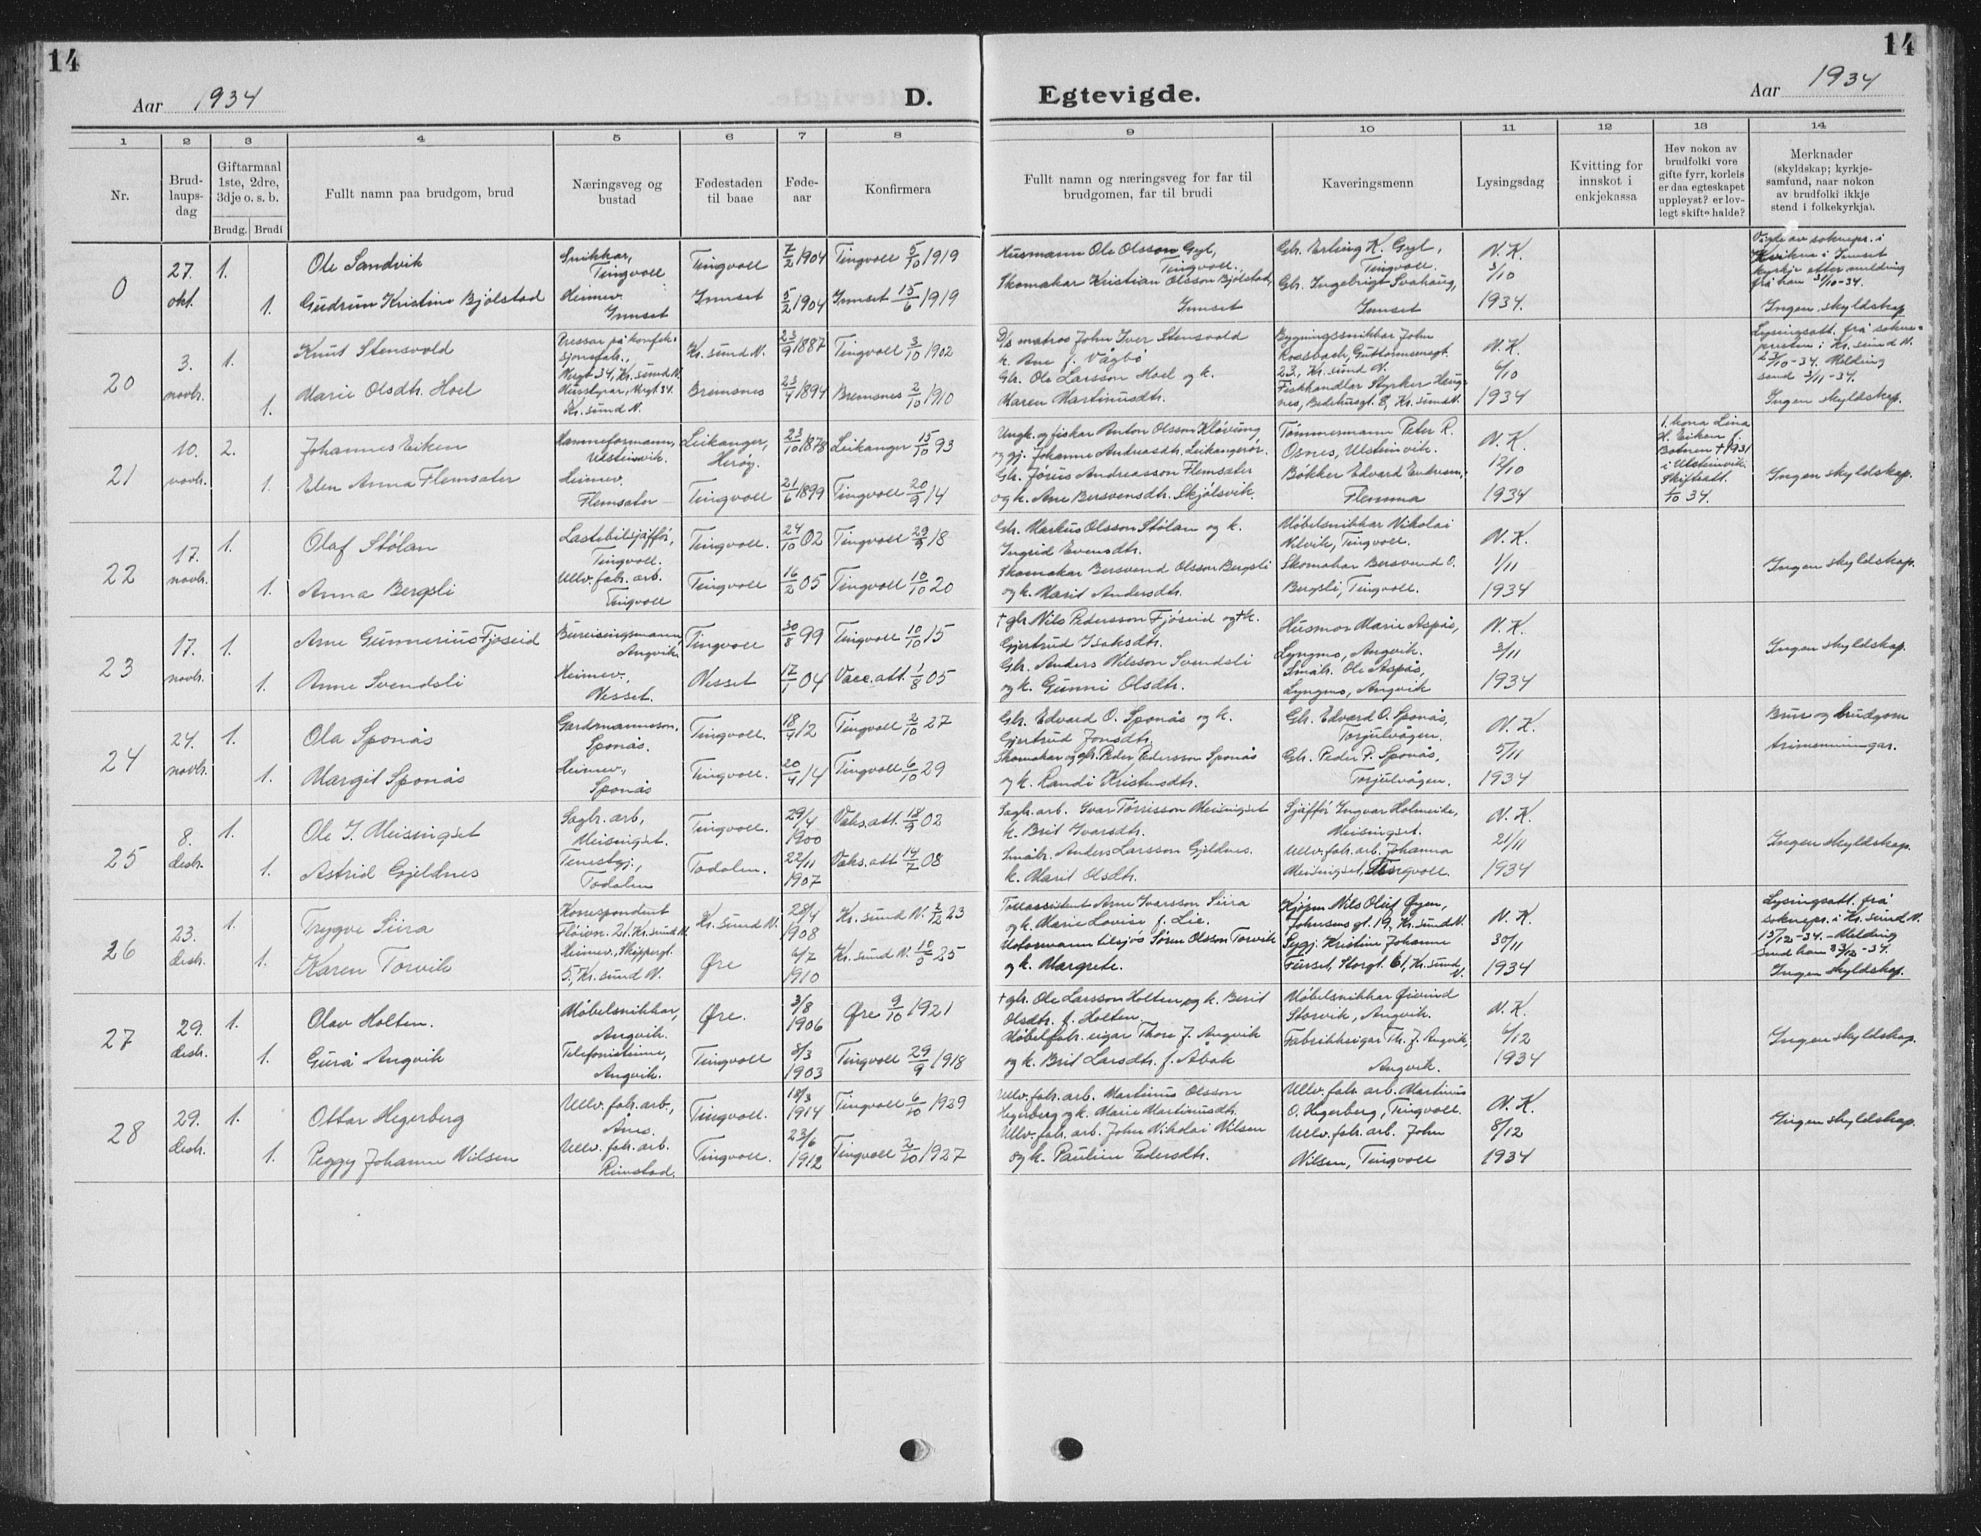 14
14
Aar 1934
D.
Egtevigde.
Aar 1934
1 2 3 4 5 6 7 8
9 10 11 12 13 14
Nr.
Brud-
laups-
dag
Giftarmaal
1ste, 2dre,
3dje o. s. b.
Brudg. Brudi
Fullt namn paa brudgom, brud
Næringsveg og
bustad
Fødestaden
til baae
Føde-
aar
Konfirmera
Fullt namn og næringsveg for far til
brudgomen, far til brudi
Kaveringsmenn
Lysingsdag
Kvitting for
innskot i
enkjekassa
Hev nokon av
brudfolki vore
gifte fyrr, korleis
er daa egteskapet
uppleyst? er lov-
legt skifte halde?
Merknader
(skyldskap; kyrkje-
samfund, naar nokon
av brudfolki ikkje
stend i folkekyrkja).
0
27.
okt.
1.
Ole Sandvik
Snikkar,
Tingvoll
Tingvoll
7/2 1904
Tingvoll 5/10 1919
Husmann Ole Olsson Gyl,
Tingvoll.
Gbr. Erling K. Gyl,
Tingvoll.
N. K.
3/10
1934.
1.
Gudrun Kristine Bjølstad
Heimev.
Innset
Innset
5/2 1904
Innset 15/6 1919
Skomakar Kristian Olsson Bjølstad,
Innset
Gbr. Ingebrigt Svahaug,
Innset
Vigde av soknepr. i
Kvikne i Innset
kyrkje etter melding
frå han 31/10-34.
Ingen skyldskap
20
3.
novbr.
1.
Knut Stensvold
Pressar på konfek-
sjonsfabr.,
Vegt 34, Kr. sund N.
Kr. sund N.
23/9 1887
Tingvoll 3/10 1902
D/s matros John Iver Stensvold
k. Ane f. Vågbø
Bygningssnikkar John
Rossbach, Guttormsensgt.
23, Kr. sund N.
N. K.
6/10
1934
1.
Marie Olsdtr. Hoel
Husstyrar, Vegt 34.
Kr. sund N.
Bremsnes
23/4 1894
Bremsnes 2/10 1910
Gbr. Ole Larsson Hoel og k.
Maren Martinusdtr.
Fiskhandlar Styrker Haug-
nes, Bedehusgt. 8, Kr. sund N.
Lysingsatt. frå sokne-
presten i Kr. sund N.
23/10-34. Melding
send 3/11-34.
Ingen skyldskap.
21
10.
novbr.
2.
Johannes Eiken
Ulsteinvik.
Leikanger,
Herøy.
23/10 1878
Leikanger 15/10 93
Ungk. og fiskar Anton Olsson Kløvung
og gj. Johanne Andreasdtr. Leikangerør.
Tømmermann Peter R.
Osnes, Ulsteinvik.
N. K.
12/10
1934
1.
Elen Anna Flemsæter
Heimev.
Flemsæter
Tingvoll
21/6 1899
Tingvoll 20/9 14
Gbr. Jørus Andreasson Flemsæter
og k. Ane Bersvensdtr. Skjølsvik.
Bøkker Edvard Endresen,
Flemma
1. kona Lina
H. Eiken f.
Botnen † 1931
i Ulsteinvik.
Skiftsatt.
1/10 34.
Ingen skyldskap.
22
17.
novbr.
1.
Olaf Stølan
Lastebilsjåffør,
Tingvoll.
Tingvoll.
24/10 02
Tingvoll 23/9 18
Gbr. Markus Olsson Stølan og k.
Ingrid Evensdtr.
Møbelsnikkar Nikolai
Vilvik, Tingvoll.
N. K.
1/11
1934
1.
Anna Bergsli
Ullv. fabr. arb.
Tingvoll
Tingvoll
16/2 05
Tingvoll 10/10 20
Skomakar Bersvend Olsson Bergsli
og k. Marit Andersdtr.
Skomakar Bersvend O.
Bergsli, Tingvoll.
Ingen skyldskap.
23
17.
novbr.
1.
Arne Gunnerius Fjøseid
Bureisingsmann,
Angvik.
Tingvoll
30/8 99
Tingvoll 10/10 15
† gbr. Nils Pedersson Fjøseid og † k.
Gjertrud Isaksdtr.
Husmor Marie Aspås,
Lyngmo, Angvik.
N. K.
3/11
1934
1.
Anne Svendsli
Heimev.,
Nesset.
Nesset
17/1 04
Vacc. att. 1/8 05
Gbr. Anders Nilsson Svendsli
og k. Gunni Olsdtr.
Småbr. Ole Aspås,
Lyngmo, Angvik
Ingen skyldskap.
24
24.
novbr.
1.
Ola Sponås
Gardmannsson,
Sponås.
Tingvoll.
18/4 12
Tingvoll 2/10 27
Gbr. Edvard O. Sponås og k.
Gjertrud Jonsdtr.
Gbr. Edvard O. Sponås,
Torjulvågen.
N. K.
5/11
1934
1.
Margit Sponås
Heimev.,
Sponås
Tingvoll.
20/4 14
Tingvoll 6/10 29
Skomakar og gbr. Peder Pedersson Sponås
og k. Randi Kristensdtr.
Gbr. Peder P. Sponås,
Torjulvågen.
Brur og brudgom
trimenningar.
25
8.
desbr.
1.
Ole I. Meisingset
Sagbr. arb,
Meisingset.
Tingvoll.
29/4
1900
Vaks. att. 18/9 02
Sagbr. arb. Ivar Tørrisson Meisingset
k. Brit Ivarsdtr.
Sjåffør Ingvar Holmeide,
Meisingset.
N. K.
21/11
1934
1.
Astrid Gjeldnes
Tenestgj.,
Todalen
Todalen.
22/11
1907
Vaks. att 14/7 08
Småbr. Anders Larsson Gjeldnes.
k. Marit Olsdtr.
Ullv. fabr. arb. Johanna
Meisingset, Tingvoll.
Ingen skyldskap.
26
23.
desbr.
1.
Trygve Siira
Korrespondent
Fløivn. 21. Kr. sund N.
Kr. sund N.
28/4
1908
Kr. sund N. 2/12 23
Tollassistent Arne Ivarsson Siira
og k. Marie Lovise f. Lie.
Kjøpm. Nils Oluf Øyen,
Johnsensgt. 19, Kr. sund N.
N. K.
30/11
1934
1.
Karen Torvik
Heimev., Skippergt.
5, Kr. sund N.
Øre
6/7
1910
Kr. sund N. 10/5 25
Søren Olsson Torvik
og k. Margrete.
Sygj. Kristine Johanne
Furset, Storgt. 61, Kr. sund N.
Lysingsatt. frå
soknepr. i Kr. sund N.
15/12-34. - Melding
send han 23/12-34.
Ingen skyldskap.
27
29.
desbr.
1.
Olav Holten.
Møbelsnikkar,
Angvik.
Øre.
3/8
1906
Øre 9/10 1921
† gbr. Ole Larsson Holten og k. Berit
Olsdtr. f. Holten.
Møbelsnikkar Øivind
Storvik, Angvik.
N. K.
6/12
1934
1.
Gurå Angvik
Telefonistinne,
Angvik.
Tingvoll
8/3
1903
Tingvoll 29/9 1918
Møbelfabr. eigar Thore J. Angvik
og k. Brit Larsdtr. f. Åbak
Fabrikkeigar Th. J. Angvik,
Angvik.
Ingen skyldskap.
28
29.
desbr.
1.
Ottar Hegerberg
Ullv. fabr. arb.,
Tingvoll.
18/3
1914
Tingvoll 6/10 1929
Ullv. fabr. arb. Martinus Olsson
Hegerberg og k. Marie Martinusdtr.
Ullv. fabr. arb. Martinus
O. Hegerberg, Tingvoll.
N. K.
8/12
1934
1.
Peggy Johanne Nilsen
Ullv. fabr. arb.
Rimstad.
Tingvoll.
23/6
1912
Tingvoll 2/10 1927
Ullv. fabr. arb. John Nikolai Nilsen
og k. Pauline Pedersdtr.
Ullv. fabr. arb. John
Nilsen, Tingvoll
Ingen skyldskap.